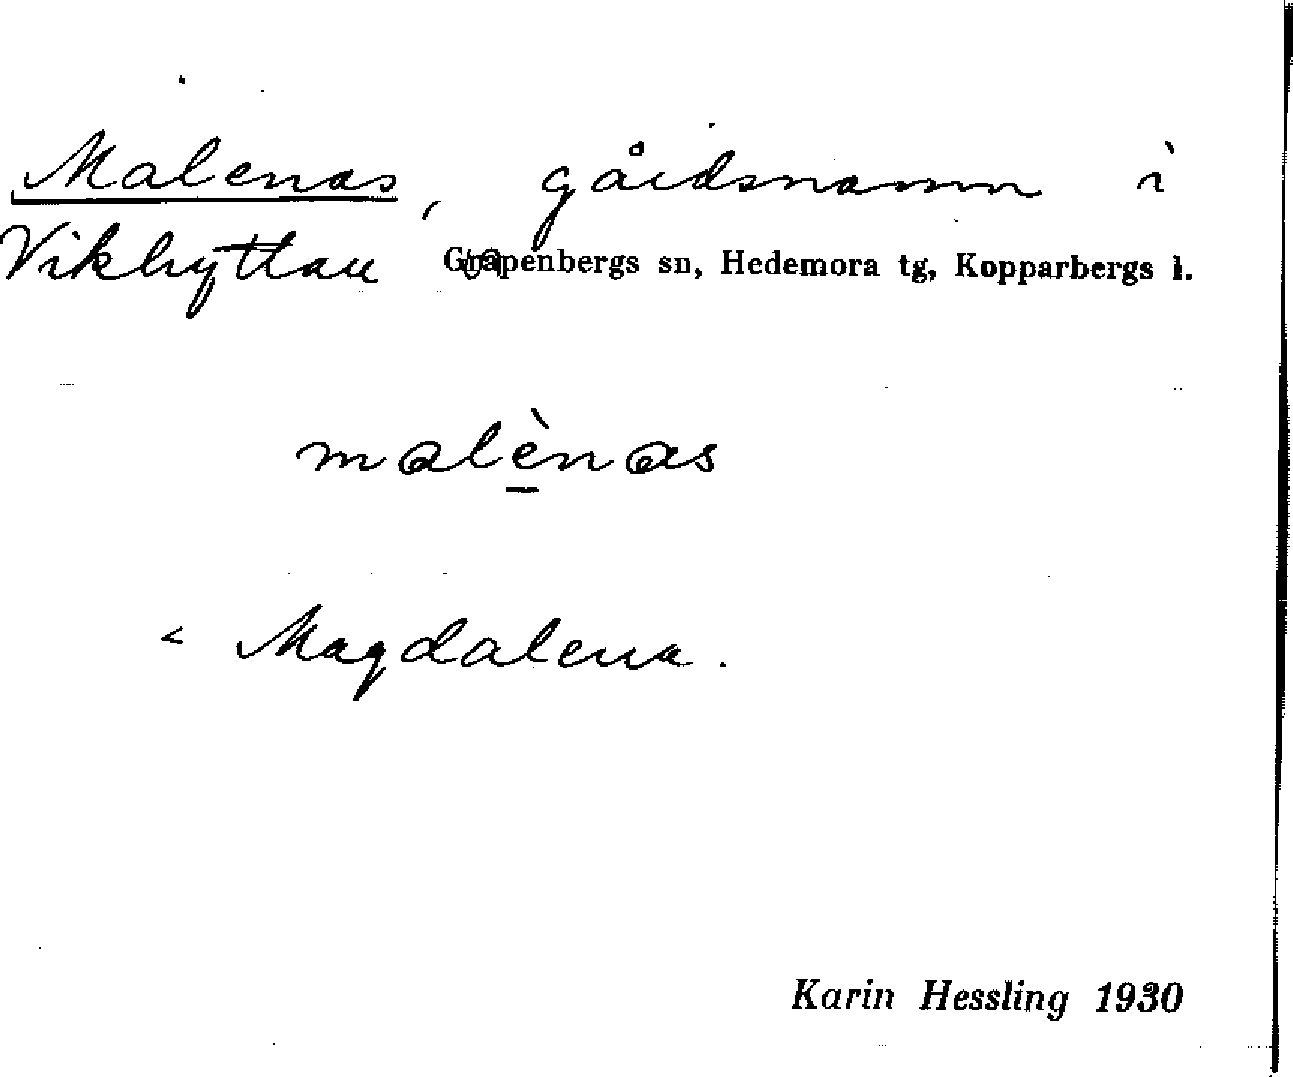 Malenas, gårdsnamn i
Vikhyttan Garpenbergs sn, Hedemora tg, Kopparbergs l.
malènas
< Magdalena.
Karin Hessling 1930